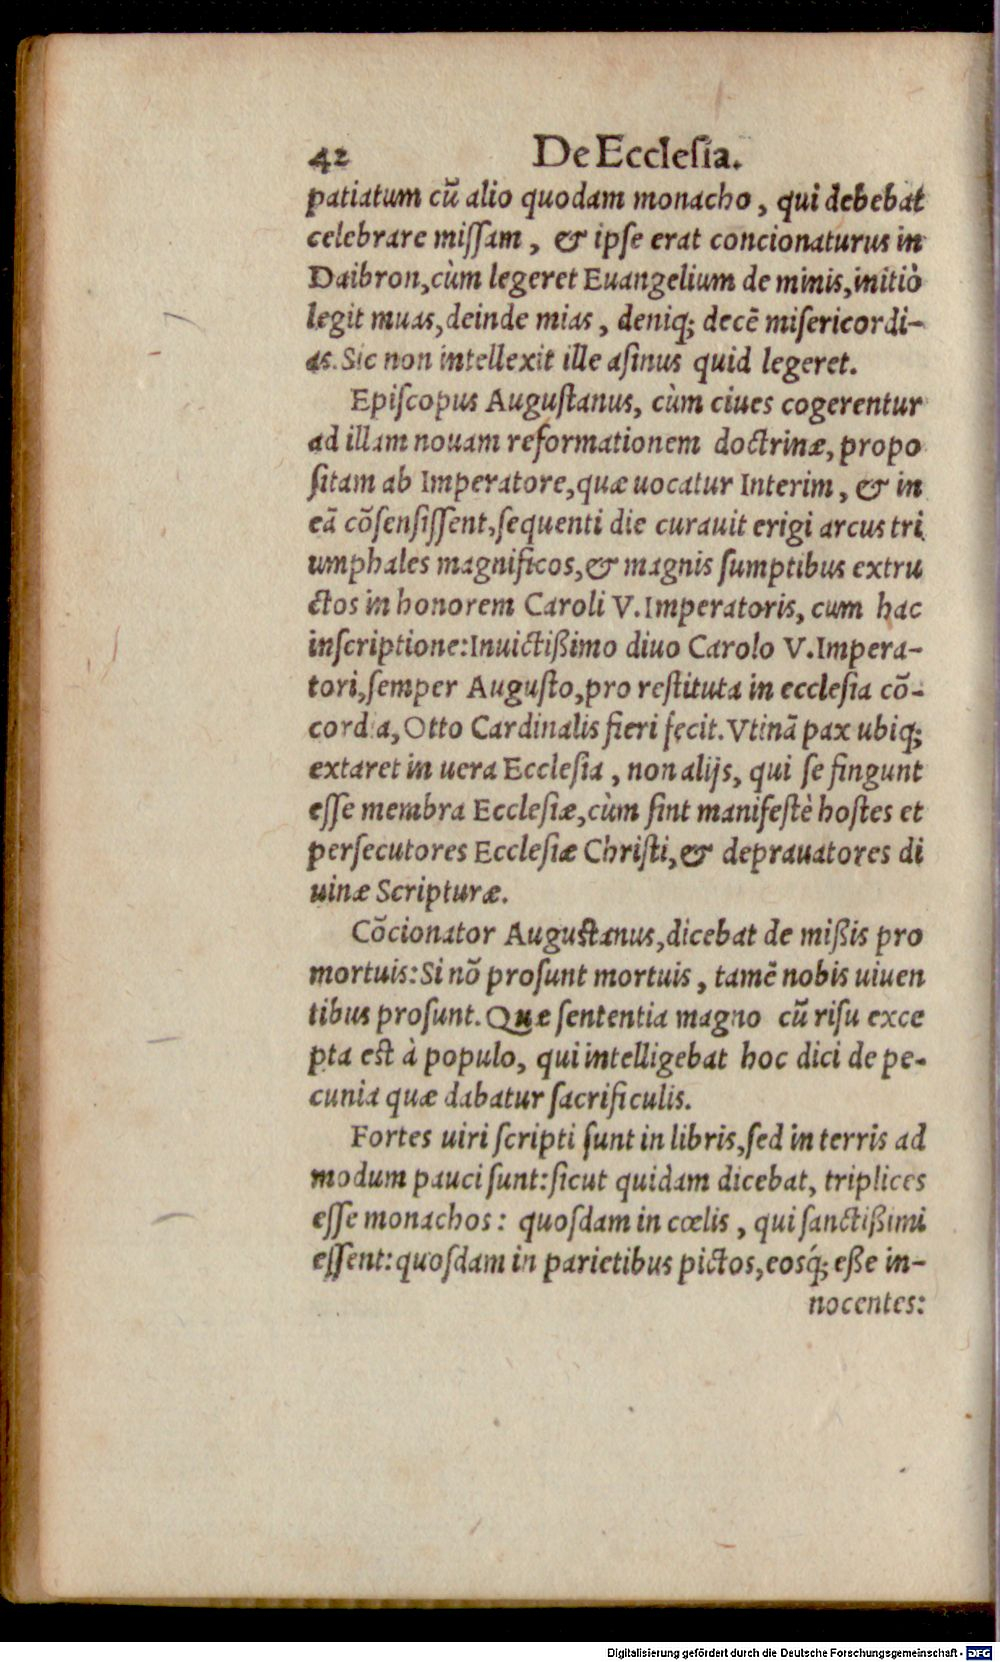 42 De Ecclesia.
patiatum cũ alio quodam monacho, qui debebat
celebrare miſſam, & ipſe erat concionaturus in
Daibron, cùm legeret Euangelium de minis, initiò
legit muas, deinde mias, deniq; decẽ miſericordi-
as. Sic non intellexit ille aſinus quid legeret.
Epiſcopus Auguſtanus, cùm ciues cogerentur
ad illam nouam reformationem doctrinæ, propo
ſitam ab Imperatore, quæ uocatur Interim, & in
eã cõſenſiſſent, ſequenti die curauit erigi arcus tri
umphales magnificos, & magnis ſumptibus extru
ctos in honorem Caroli V. Imperatoris, cum hac
inſcriptione: Inuictißimo diuo Carolo V. Impera-
tori, ſemper Auguſto, pro reſtituta in eccleſia cõ-
cordia, Otto Cardinalis fieri fecit. Vtinã pax ubiq;
extaret in uera Eccleſia, non alijs, qui ſe fingunt
eſſe membra Eccleſiæ, cùm ſint manifeſtè hoſtes et
perſecutores Eccleſiæ Chriſti, & deprauatores di
uinæ Scripturæ.
Cõcionator Auguſtanus, dicebat de mißis pro
mortuis: Si nõ proſunt mortuis, tamẽ nobis uiuen
tibus proſunt. Quæ ſententia magno cũ riſu exce
pta eſt à populo, qui intelligebat hoc dici de pe-
cunia quæ dabatur ſacrificulis.
Fortes uiri ſcripti ſunt in libris, ſed in terris ad
modum pauci ſunt: ſicut quidam dicebat, triplices
eſſe monachos: quoſdam in cœlis, qui ſanctißimi
eſſent: quoſdam in parietibus pictos, eosq́; eße in-
nocentes:
Digitalisierung gefördert durch die Deutsche Forschungsgemeinschaft - DFG